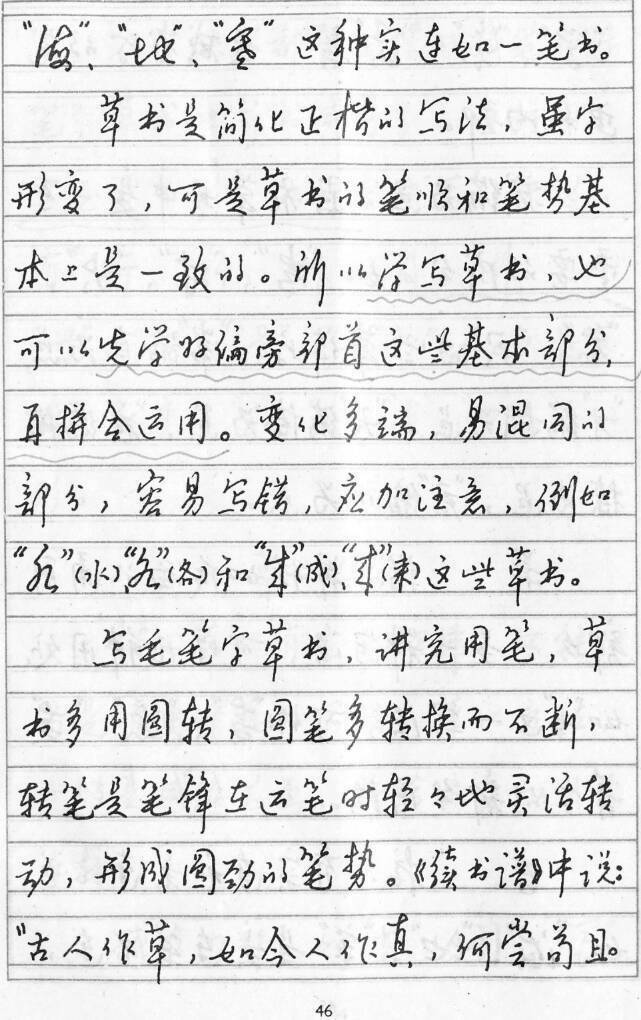 “海”、“地”、“寒”这种实连如一笔书。
草书是简化正楷的写法，虽字
形变了，可是草书的笔顺和笔势基
本上是一致的。所以学写草书，也
可以先学好偏旁部首这些基本部分，
再拼合运用。变化多端，易混同的
部分，容易写错，应加注意，例如
“水”(水)、“各”(各)和“成”(成)、“来”(来)这些草书。
写毛笔字草书，讲究用笔，草
书多用圆转，圆笔多转换而不断，
转笔是笔锋在运笔时轻々地灵活转
动，形成圆劲的笔势。《续书谱》中说：
“古人作草，如今人作真，何尝苟且。
46